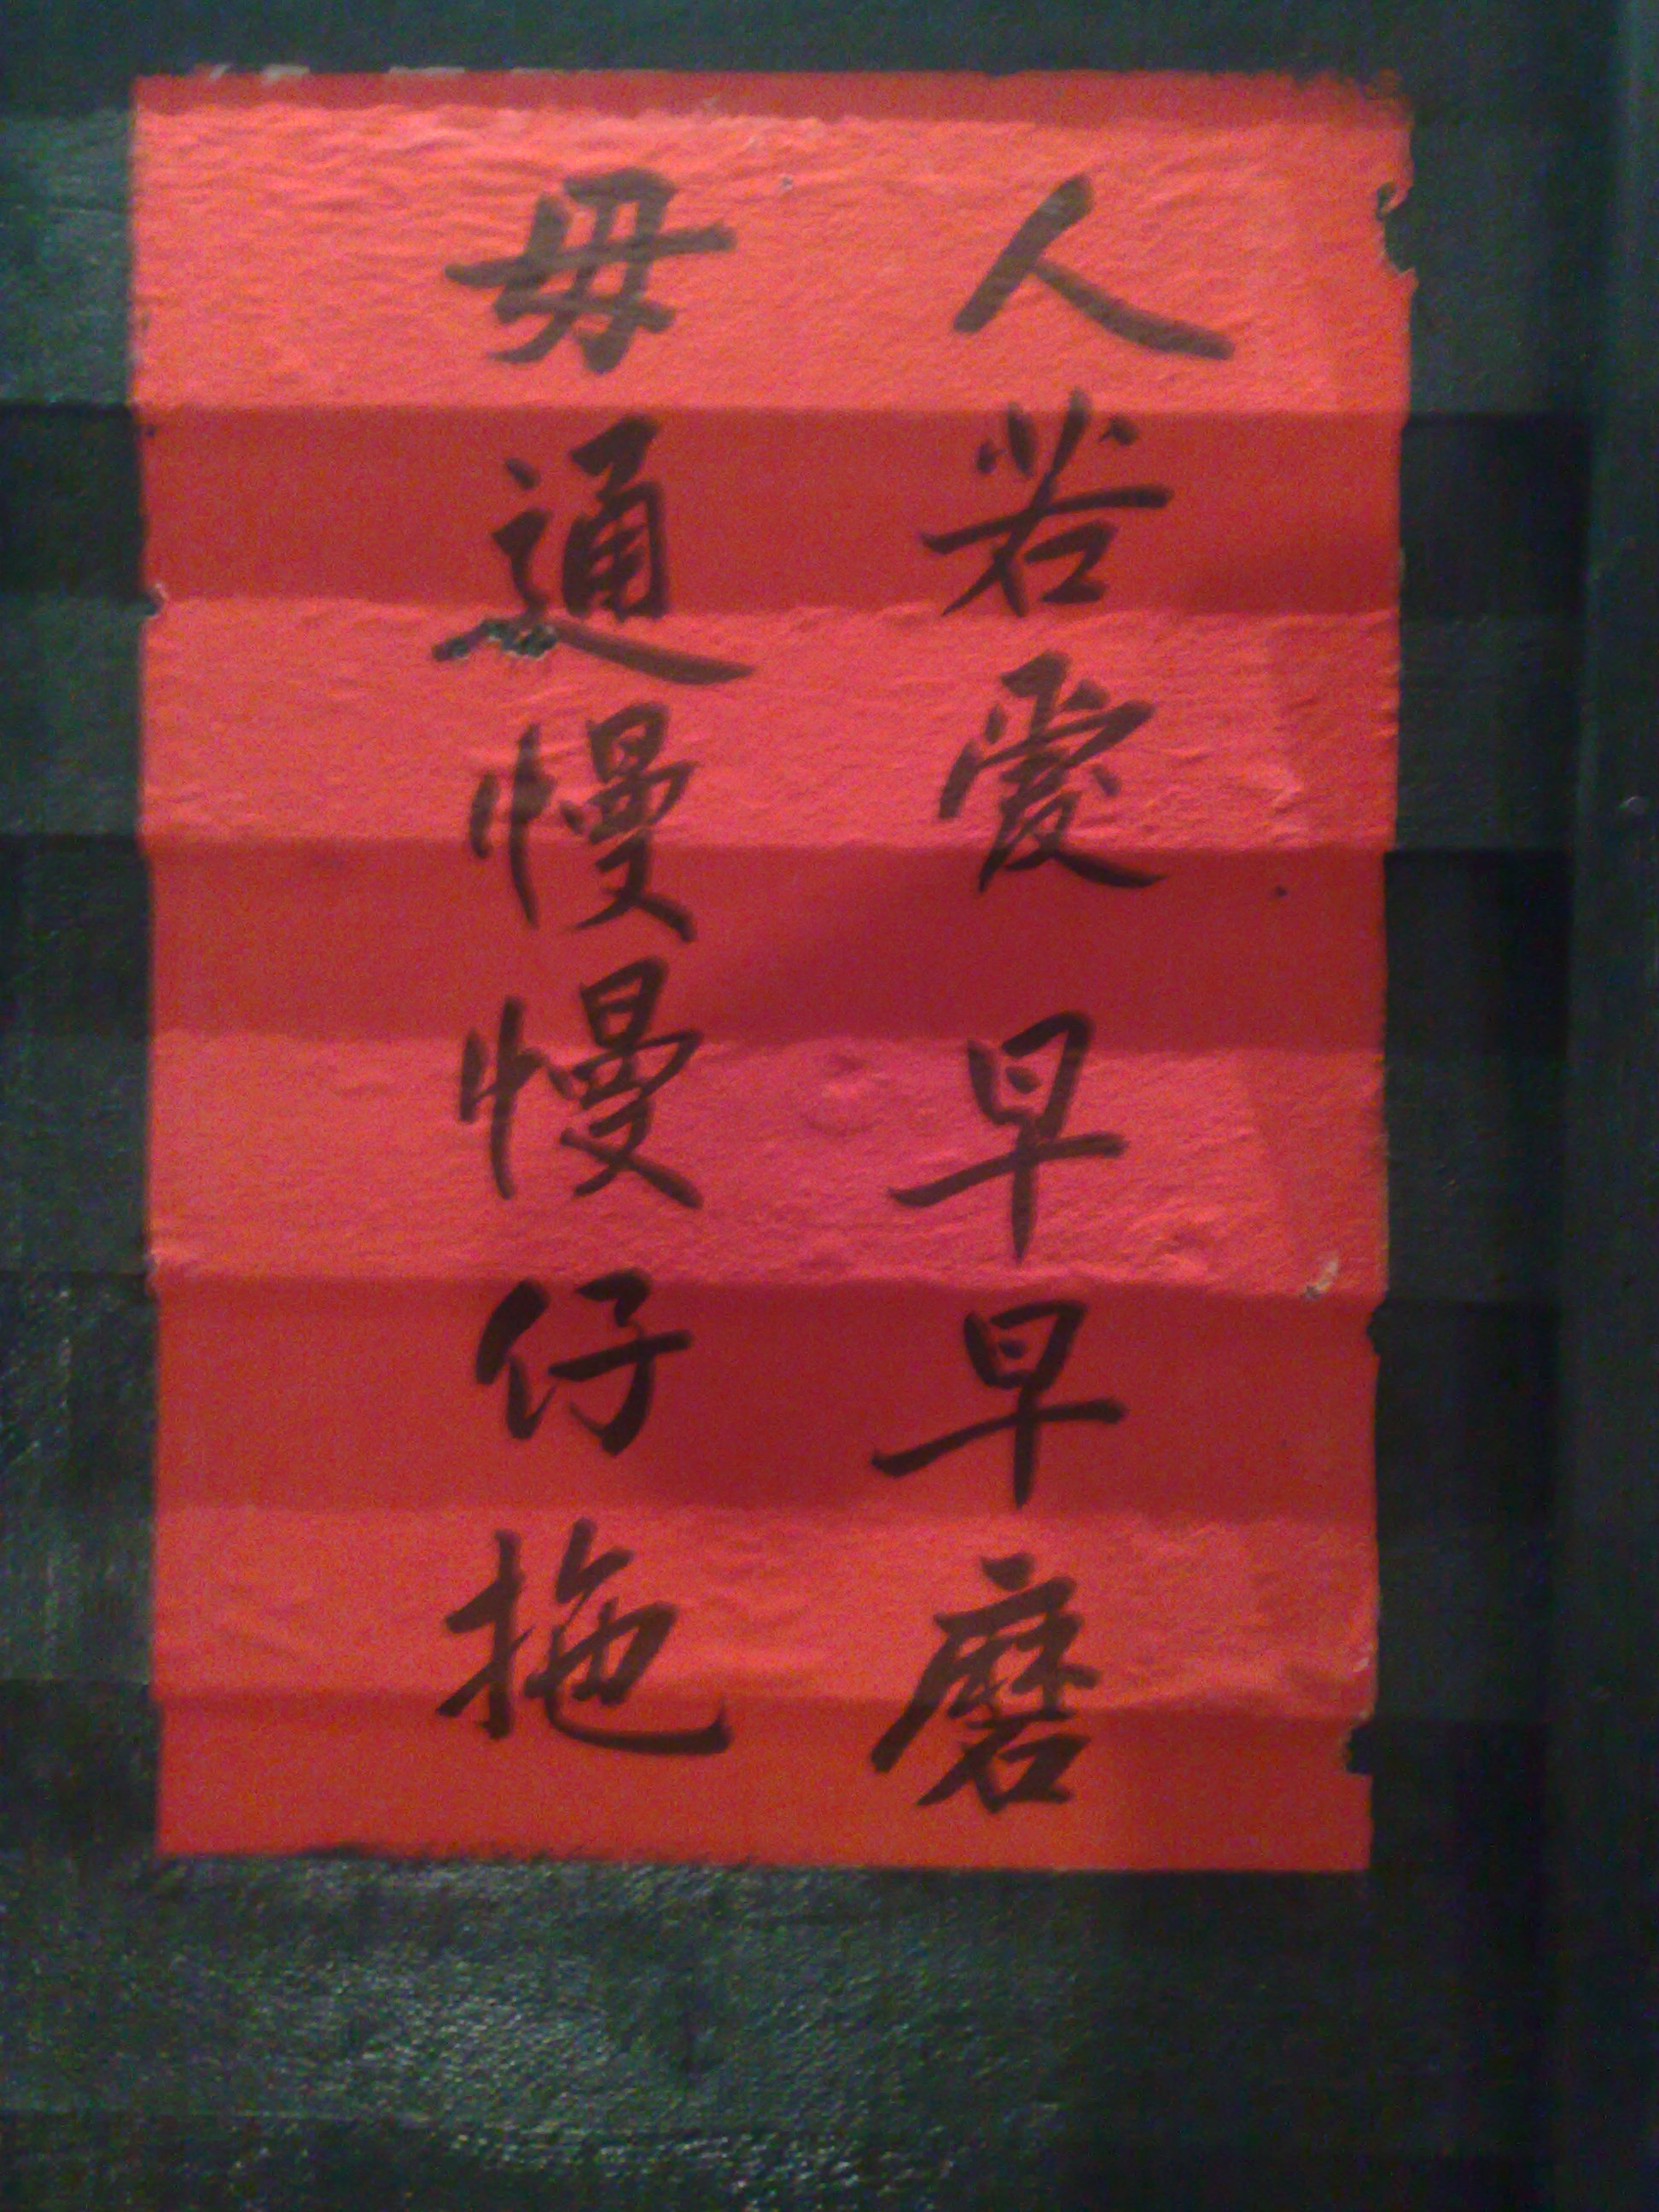 人若愛早早磨
毋通慢慢仔拖